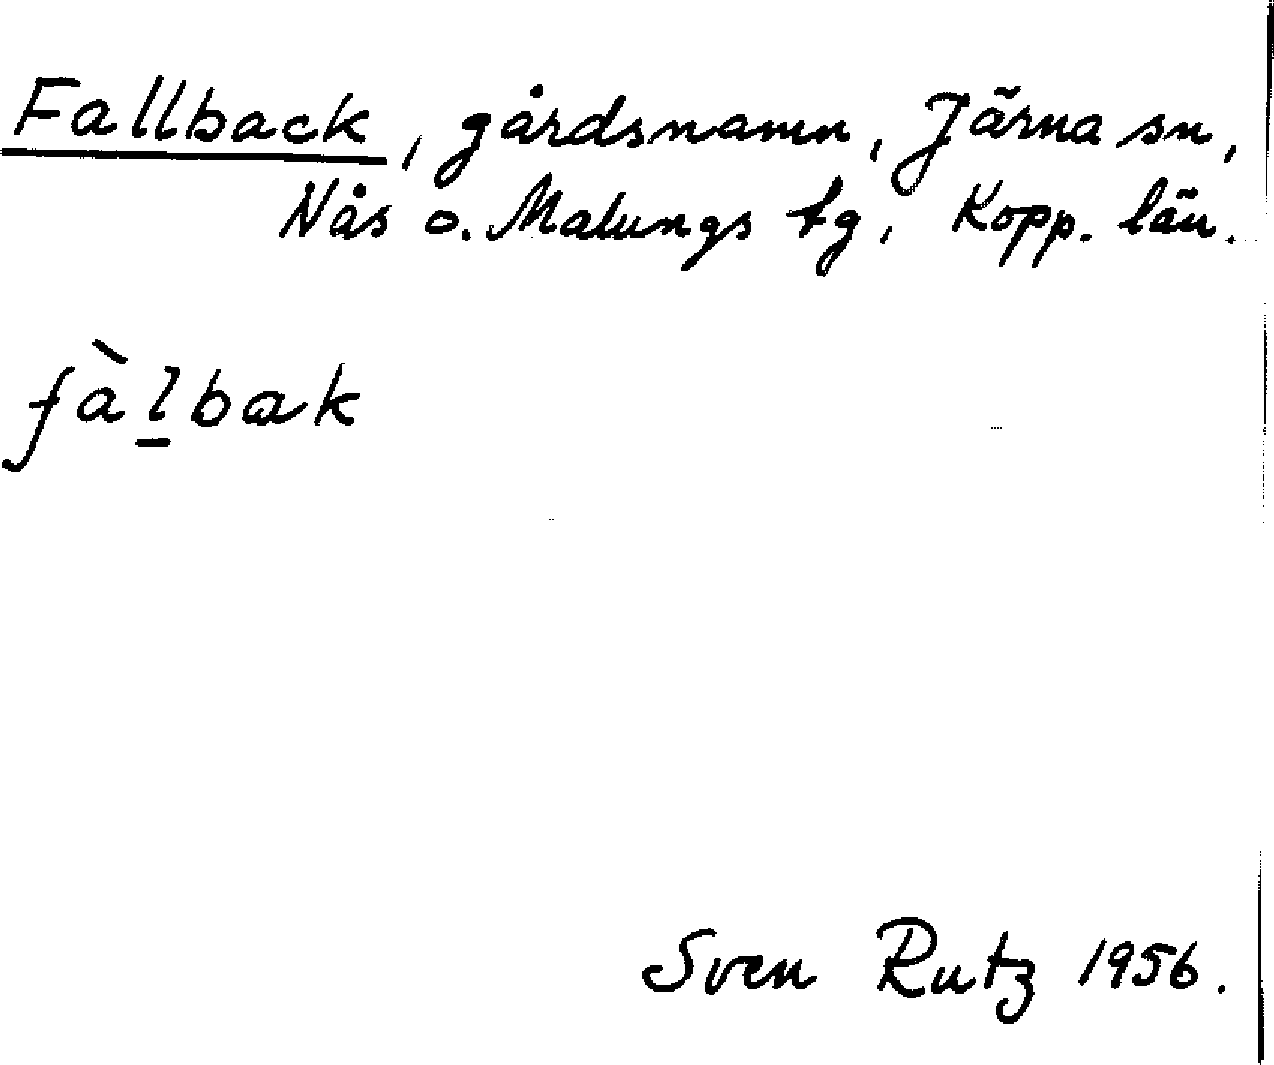 Fallback, gårdsnamn, Järna sn,
Nås o. Malungs tg, Kopp. län.
fàl̲bak
Sven Rutz 1956.